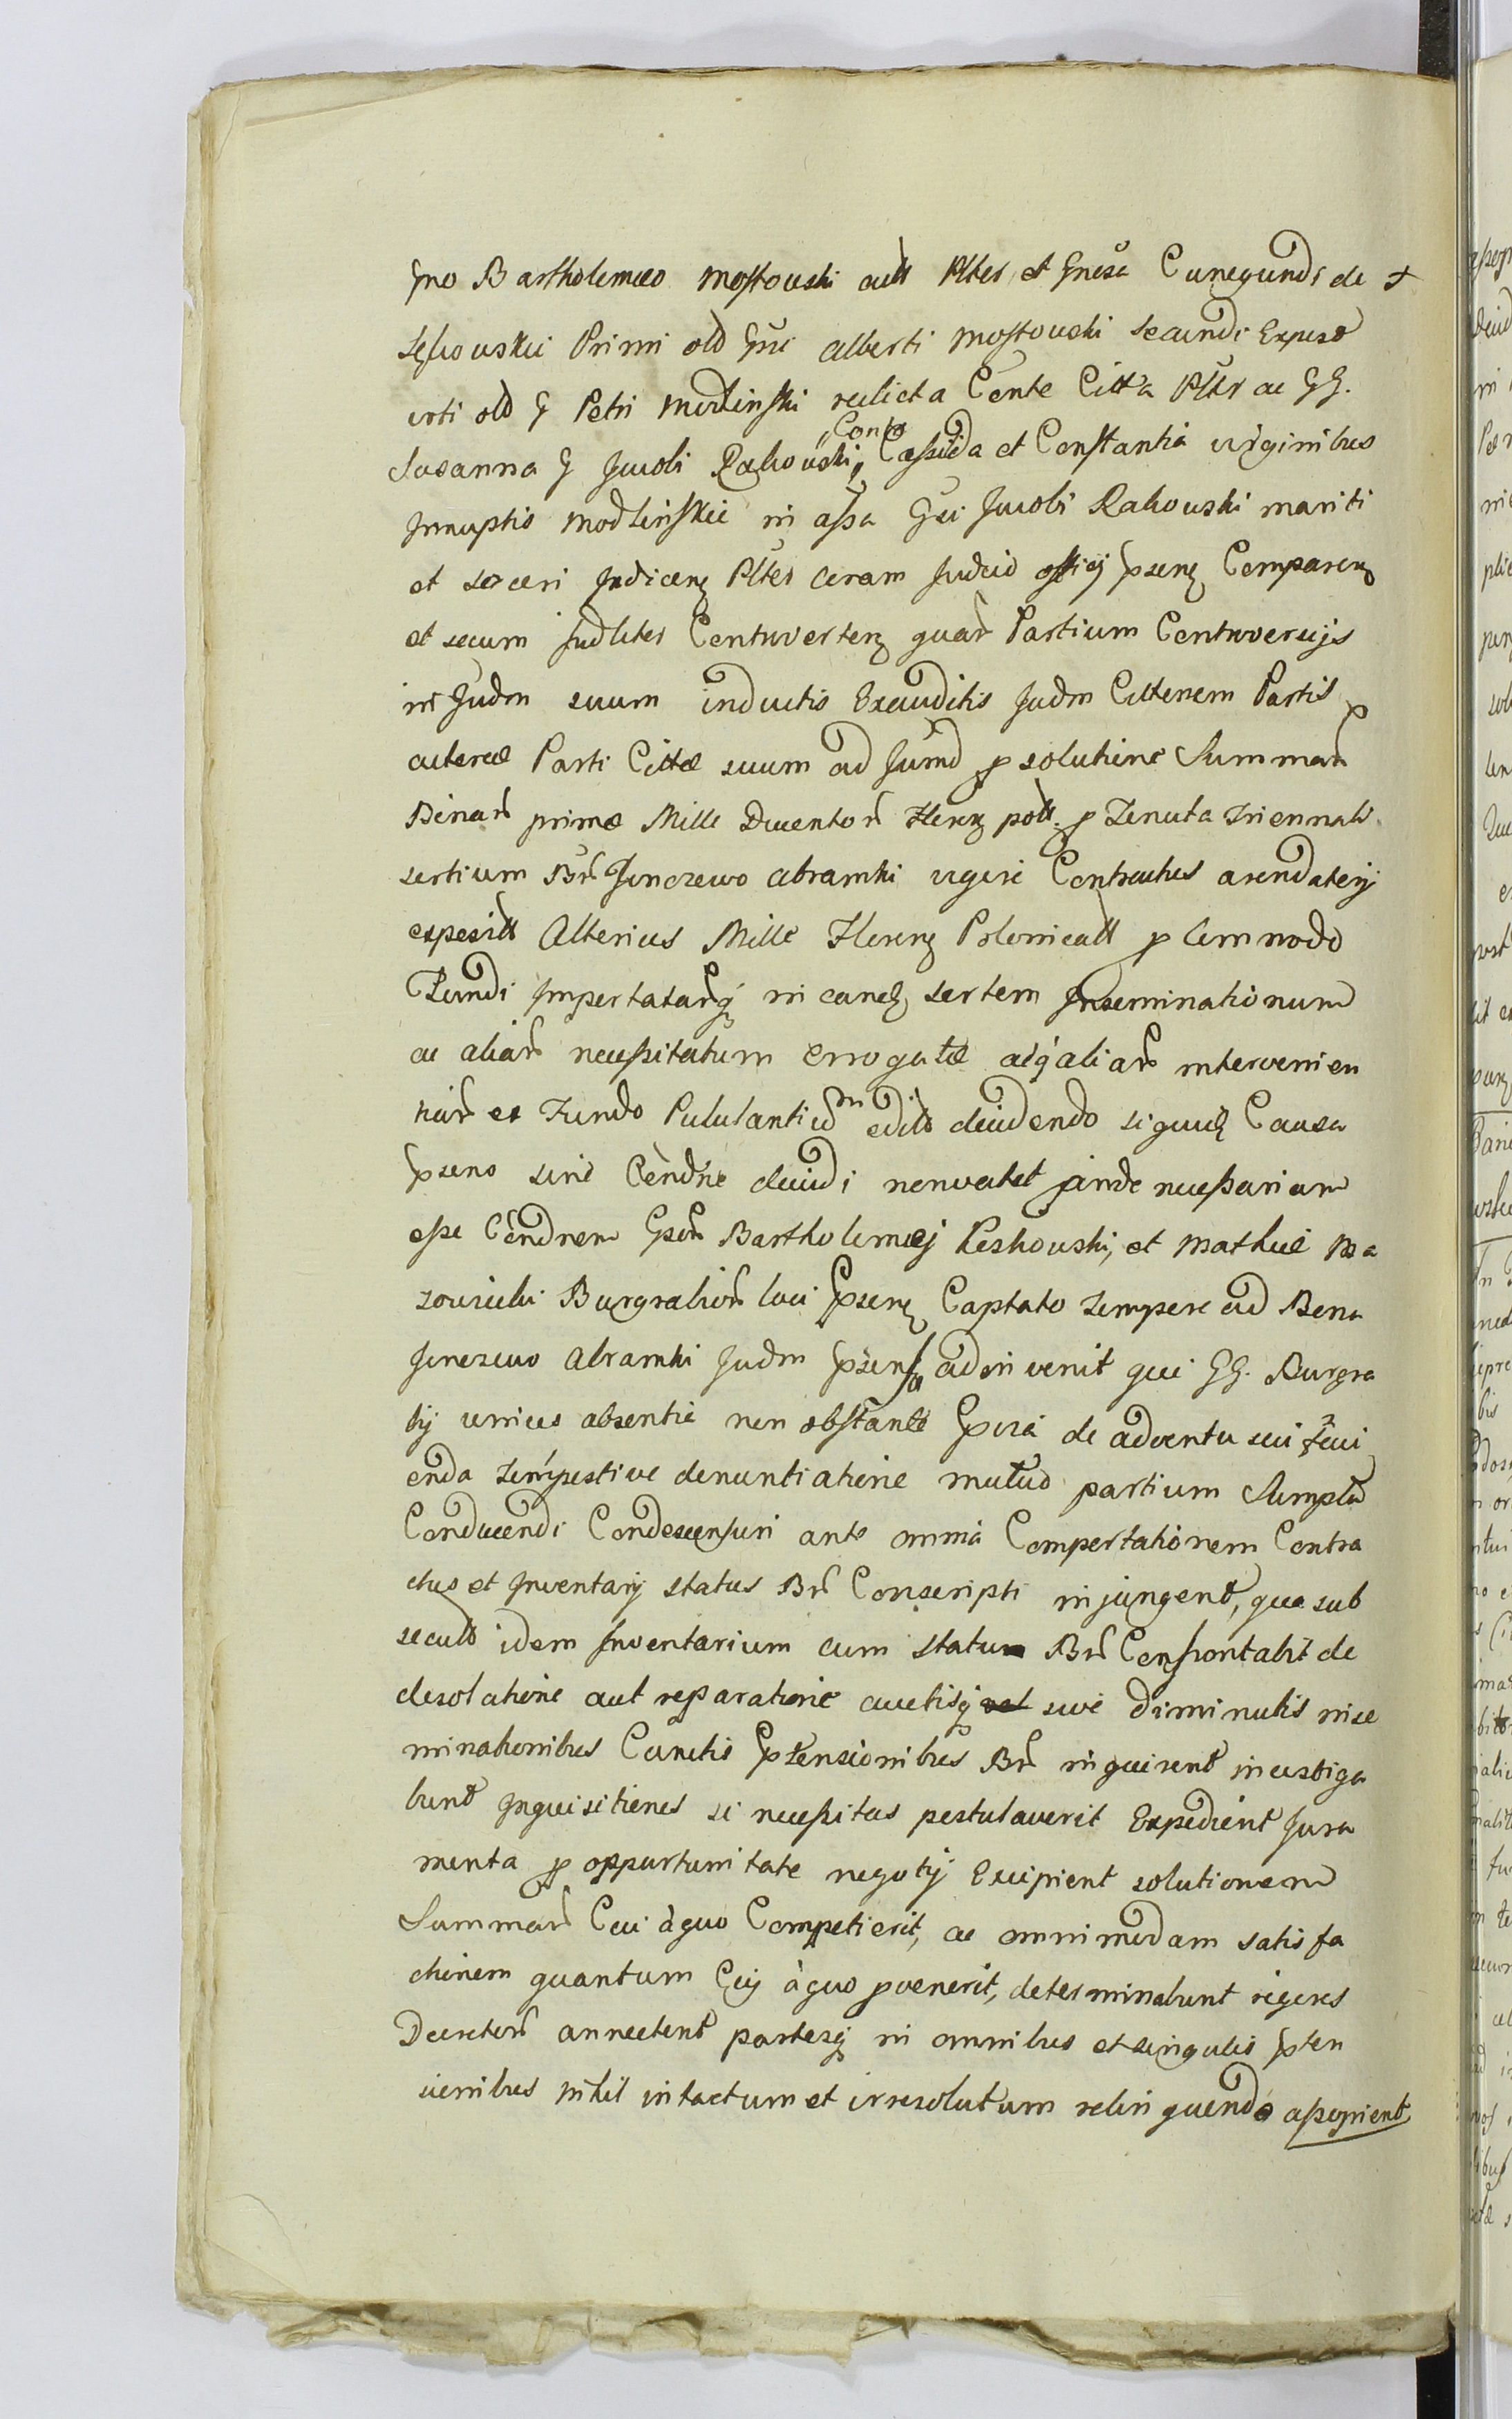 Gno Bartholomæo Mostowski actt Plter et Gnosa Cunegundi de
Lessowskie Primi olo Gnsi Alberti Mostowski secundi Exposo
voti olo G Petri Modlinski relicta Conte Citta Plter ac GG.
Susanna G Jacobi Rakowski, Conte et Constantia virginibus
Innuptis Modlinskie in assa Gsi Jacobi Rakowski mariti
et soceri Judicenz Plter coram Judcio officij Psenz Comparenz
et secum Judliter Controvertenz quar Partium Controversijs
in Judm suum inductis Exauditis Judm Cittenem Partis
actoreæ Parti Cittæ suum ad Jumd p solutione Summar
Binar primæ Mille Ducentor Florenz poll. p Tenuta Triennali
sortium Br Jonczewo Abramki vigore Contractus arendatorij
exposiitt Alterius Mille Florenz Polonicall p Commodo
Fundi Importatarq in eandz sortem Inseminationum
ac aliar necessitatum erogatæ aeq aliar intervenien
tiar ex Fundo Pululantiu edito decidendo siquidz Causa
Pseno sine Condne decidi nonvalet proinde necessariam
esse Condnem Gsor Bartholomæj Keskowski, et Mathiæ Ma
zowiecki Burgrabior loci Psenz Captato tempore ad Bona
Jonczewo Abramki Judm Psens adinvenit qui GG. Burgra
bij unius absentia non obstante Pvia de adventu sui faci
enda tempestive denuntiatione mutuo partium Sumptu
Conducendi Condescensuri ante omnia Comportationem Contra
ctus et Inventarij status Br Conscripti injungent, qua sub
secuto idem Inventarium cum statu Br Confrontabit de
desolatione aut reparatione auctisq sive diminutis inse
minationibus Cunctis Ptensionibus Br inquirent investiga
bunt Inquisitiones si necessitas postulaverit Expedient Jura
menta p opportunitate negotij Excipient solutionem
Summar Cui à quo Competierit, ac omnimodam satisfa
ctionem quantum Cuj à quo pvenerit, determinabunt rigores
Decretor annectent partesq in omnibus et singulis Pten
sionibus nihil intactum et irresolutum relinquendo assopient